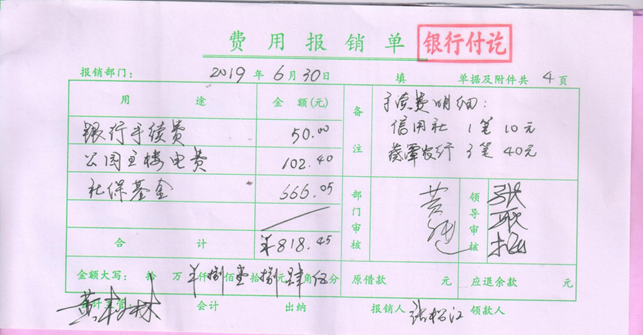 费用报销单
银行付讫
报销部门： 2019年6月30日 填 单据及附件共4页
用途 金额(元) 备注
手续费明细：
银行手续费 50.00
信用社 1笔 10元
3笔 40元
公园主楼电费 102.40
社保基金 666.05
部门审核 领导审核
合计 ¥818.45
金额大写： 拾 万 ¥仟捌佰壹拾捌元肆角伍分 原借款 元 应退余款 元
会计 出纳 报销人 领款人